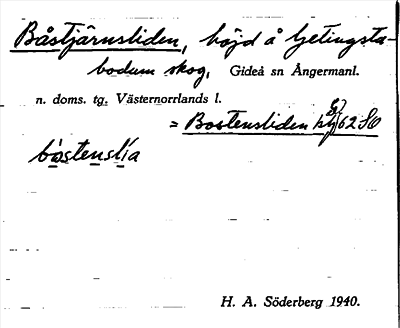 Båstjärnsliden, höjd å Getingsta-
bodum skog, Gideå sn Ångermanl.
n. doms. tg. Västernorrlands l.
= Bostensliden 62 SO
bòstenslía
H. A. Söderberg 1940.